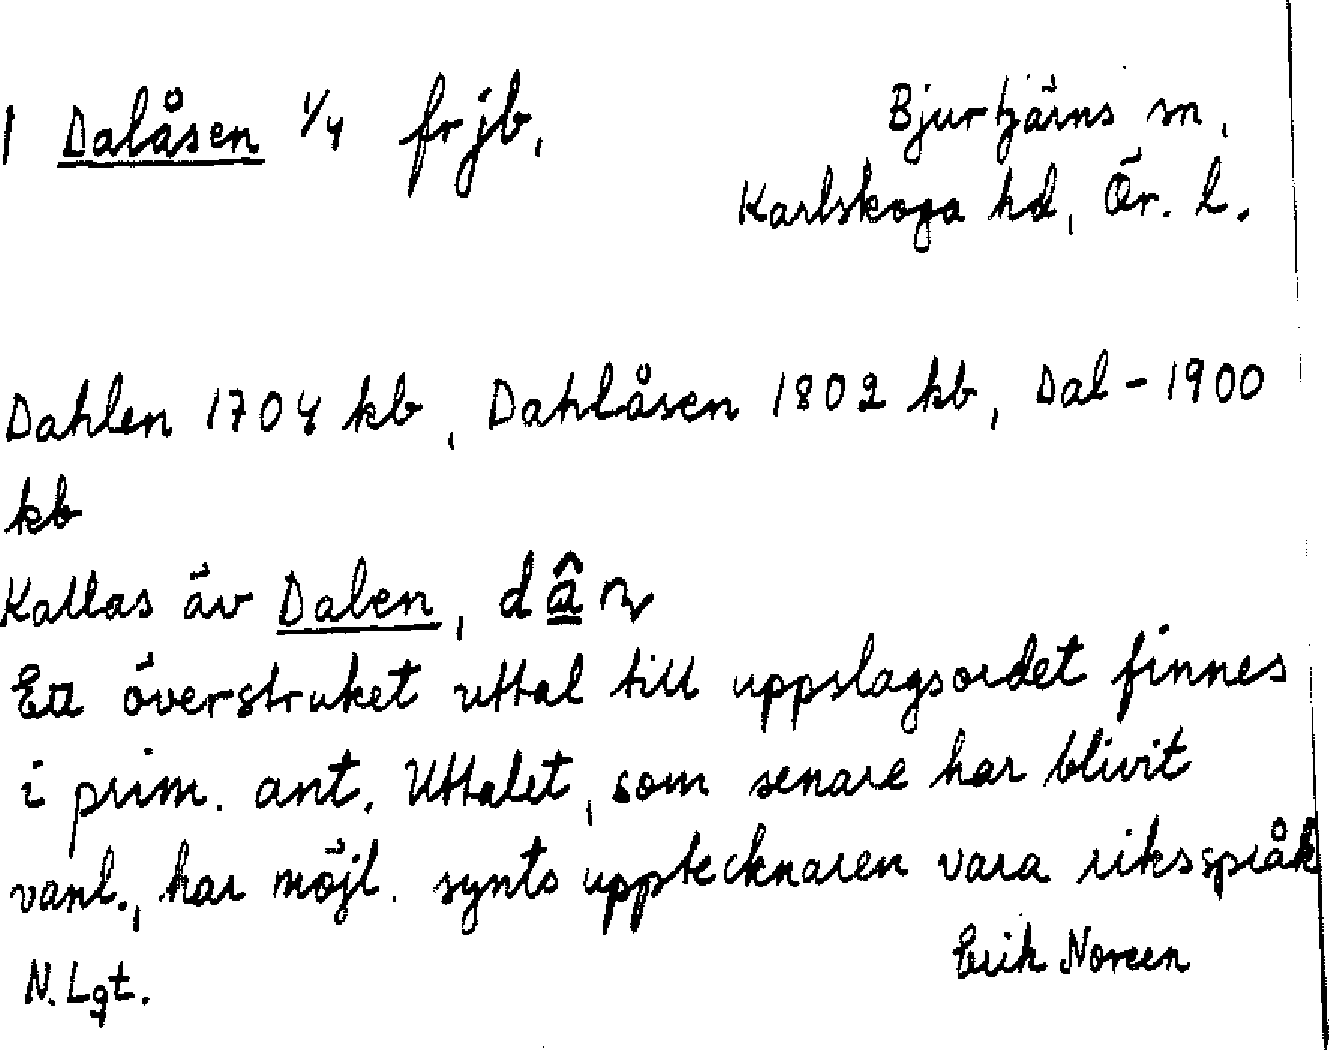 1 Dalåsen 1/4 frjb,
Bjurtjärns sn,
Karlskoga hd, Ör. l.
Dahlen 1704 kb, Dahlåsen 1802 kb, Dal- 1900
kb
Kallas äv Dalen, dân
Ett överstruket uttal till uppslagsordet finnes
i prim. ant. Uttalet, som senare har blivit
vanl., har möjl. synts upptecknaren vara riksspråk
Erik Noreen
N. Lgt.